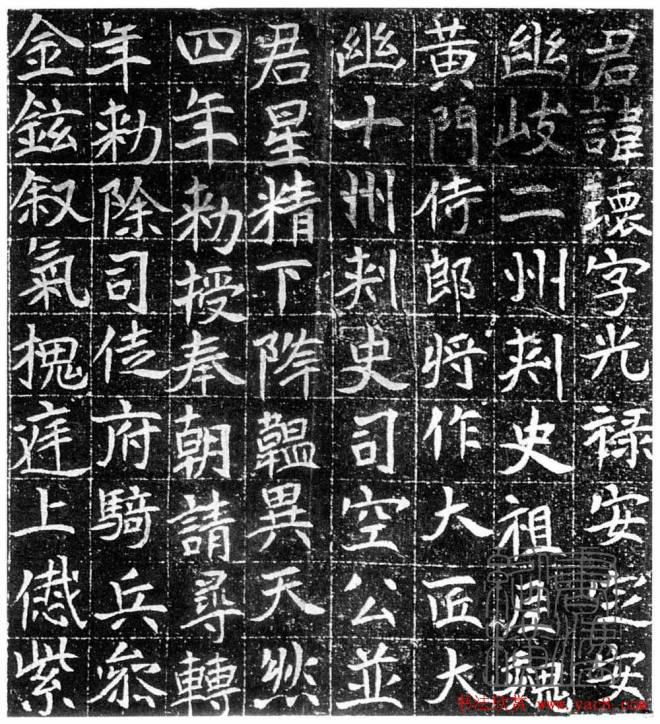 君諱瓌字光祿安定安
幽岐二州刺史祖魏
黄門侍郎将作大匠大
幽十州刺史司空公並
君星精下降韞異天然
四年勅授奉朝請尋轉
年勅除司徒府騎兵叅
金鉉叙氣槐庭上紫
书法欣赏 www.yac8.com